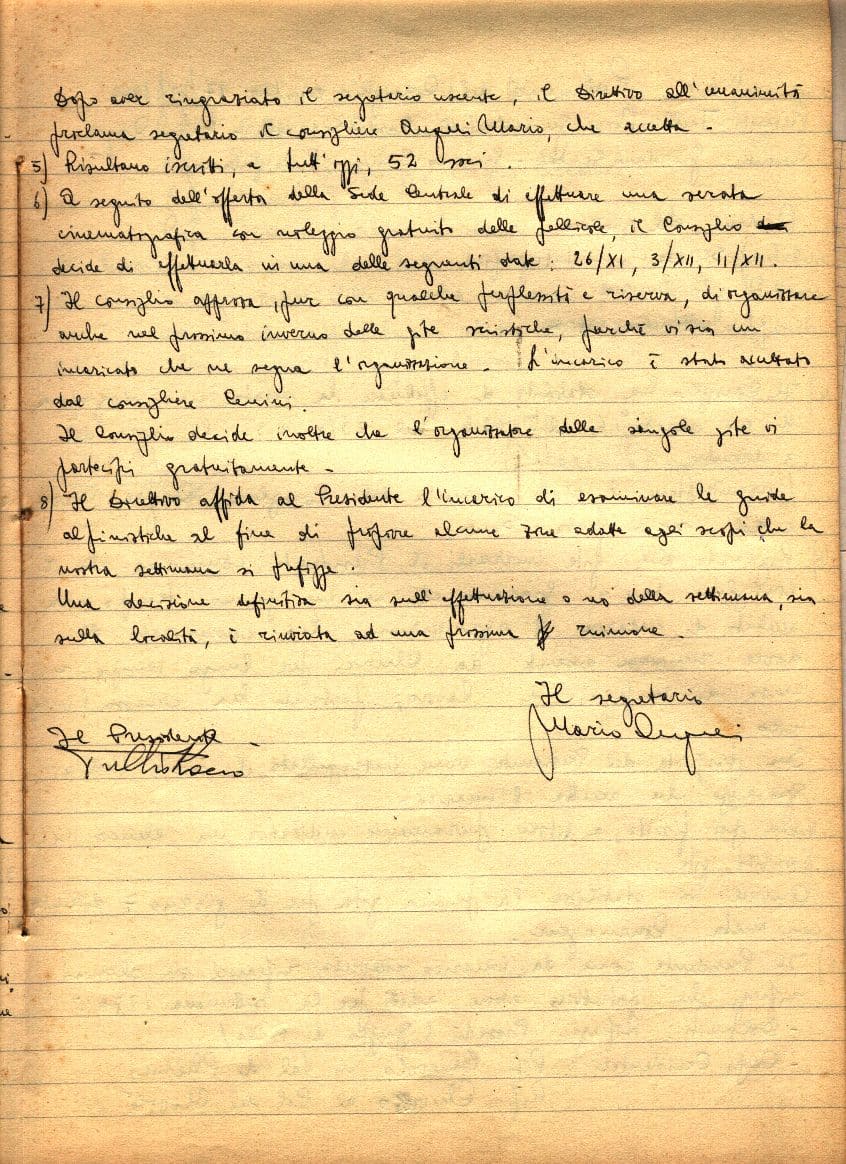 Dopo aver ringraziato il segretario uscente, il Direttivo all'unanimità
proclama segretario il consigliere Angeli Mario, che accetta -
5) Risultano iscritti, a tutt'oggi, 52 soci.
6) A seguito dell'offerta della Sede Centrale di effettuare una serata
cinematografica con noleggio gratuito delle pellicole, il Consiglio
decide di effettuarla in una delle seguenti date: 26/XI, 3/XII, 11/XII.
7) Il consiglio approva, pur con qualche perplessità e riserva, di organizzare
anche nel prossimo inverno delle gite sciistiche, purché vi sia un
incaricato che ne segua l'organizzazione. L'incarico è stato accettato
dal consigliere
Il Consiglio decide inoltre che l'organizzatore delle singole gite vi
partecipi gratuitamente -
8) Il Direttivo affida al Presidente l'incarico di esaminare le guide
alpinistiche al fine di proporre alcune zone adatte agli scopi che la
nostra settimana si prefigge.
Una decisione definitiva sia sull'effettuazione o no della settimana, sia
sulla località, è rinviata ad una prossima riunione.
Il segretario
Mario Angeli
Il Presidente